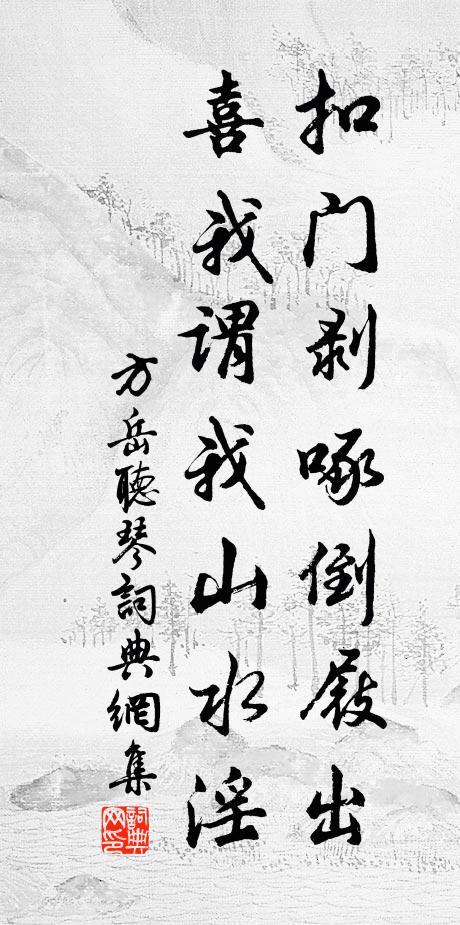 扣门剥啄倒屐出
喜我谓我山水淫
方岳聽琴詞典網集
詞典网印